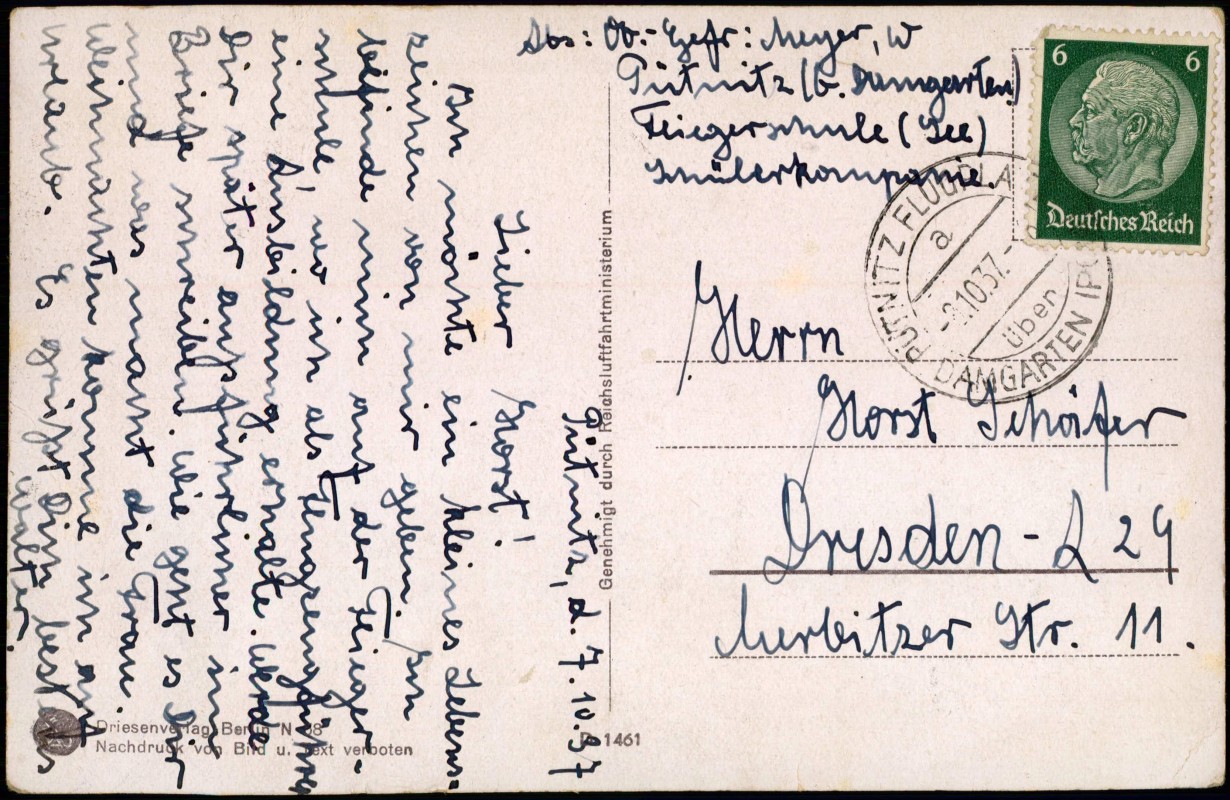 Abs: Ob.-Gefr: Meyer, W
Pütnitz (b. Damgarten)
Fliegerschule (See)
Schülerkompanie.
6 6
Deutsches Reich
PÜTNITZ FLUGPLA
a
-8.10.37.-
über
DAMGARTEN (PO
Herrn
Horst Schäfer
Dresden - A 29
Merbitzer Str. 11.
Genehmigt durch Reichsluftfahrtministerium
Pütnitz, d. 7. 10. 37
Lieber Horst!
Ich möchte ein kleines Lebens-
zeichen von mir geben. Ich
befinde mich auf der Flieger-
schule, wo ich als Flugzeugführer
eine Ausbildung erhalte. Werde
Dir später ausführlicher im
Briefe schreiben. Wie geht es Dir
und was macht die Frau.
Weihnachten komme ich auf
Urlaub. Es grüßt Dich bestens
Walter.
Driesenverlag Berlin N.
Nachdruck von Bild u. Text verboten
1461